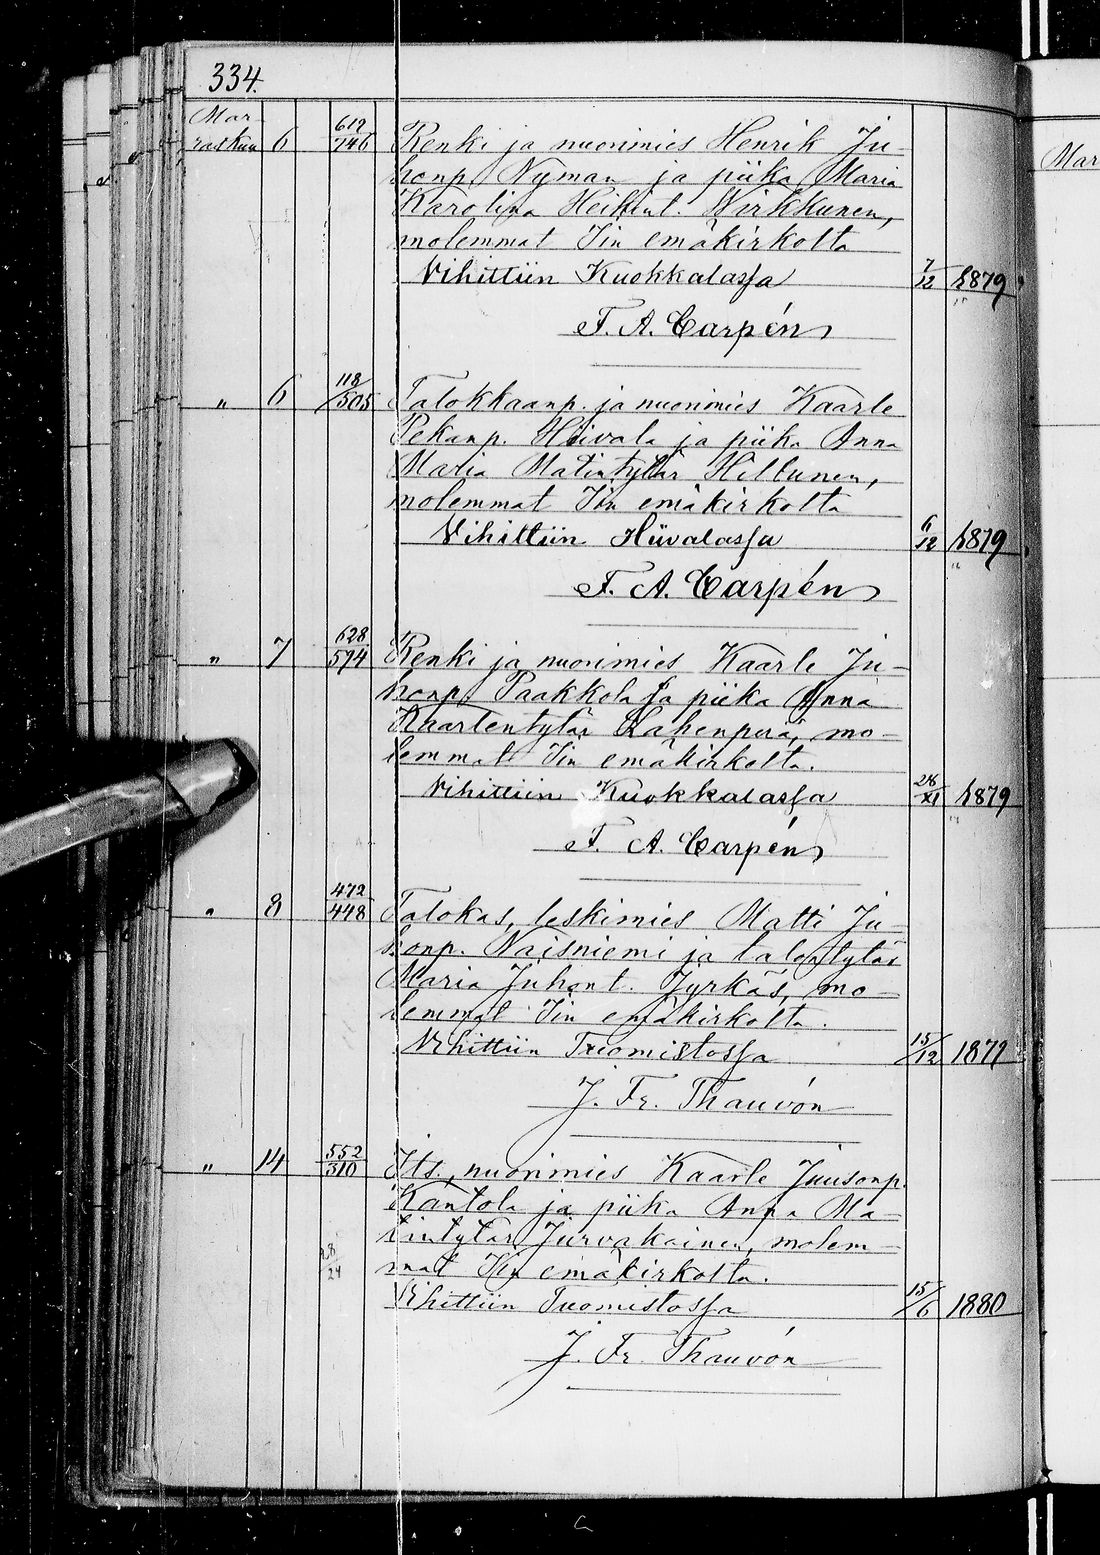 334.
Mar-
raskuu 6 612/746 Renki ja nuorimies Henrik Ju-
honp. Nyman ja piika Maria
Karolina Heikint. Wirkkunen,
molemmat Iin emäkirkolta
Vihittiin Kuokkalassa 7/12 1879
F. A. Carpén
" 6 118/505 Talokkaanp. ja nuorimies Kaarle
Pekanp. Hiivala ja piika Anna
Maria Matintytär Hiltunen,
molemmat Iin emäkirkolta
Vihittiin Hiivalassa 6/12 1879
F. A. Carpén
" 7 628/574 Renki ja nuorimies Kaarle Ju-
honp. Paakkola ja piika Anna
Kaarlentytär Lahenperä, mo-
lemmat Iin emäkirkolta.
Vihittiin Kuokkalassa 28/XI 1879
F. A. Carpén
" 8 472/448 Talokas, leskimies Matti Ju-
honp. Naisniemi ja talontytär
Maria Juhont. Jyrkäs, mo-
lemmat Iin emäkirkolta.
Vihittiin Tuomistossa 15/12 1879
J. Fr. Thauvón
" 14 552/310 Its., nuorimies Kaarle Juusonp.
Kantola ja piika Anna Ma-
tintytär Jurvakainen, molem-
mat Iin emäkirkolta.
Vihittiin Tuomistossa 15/6 1880
J. Fr. Thauvón
Mar